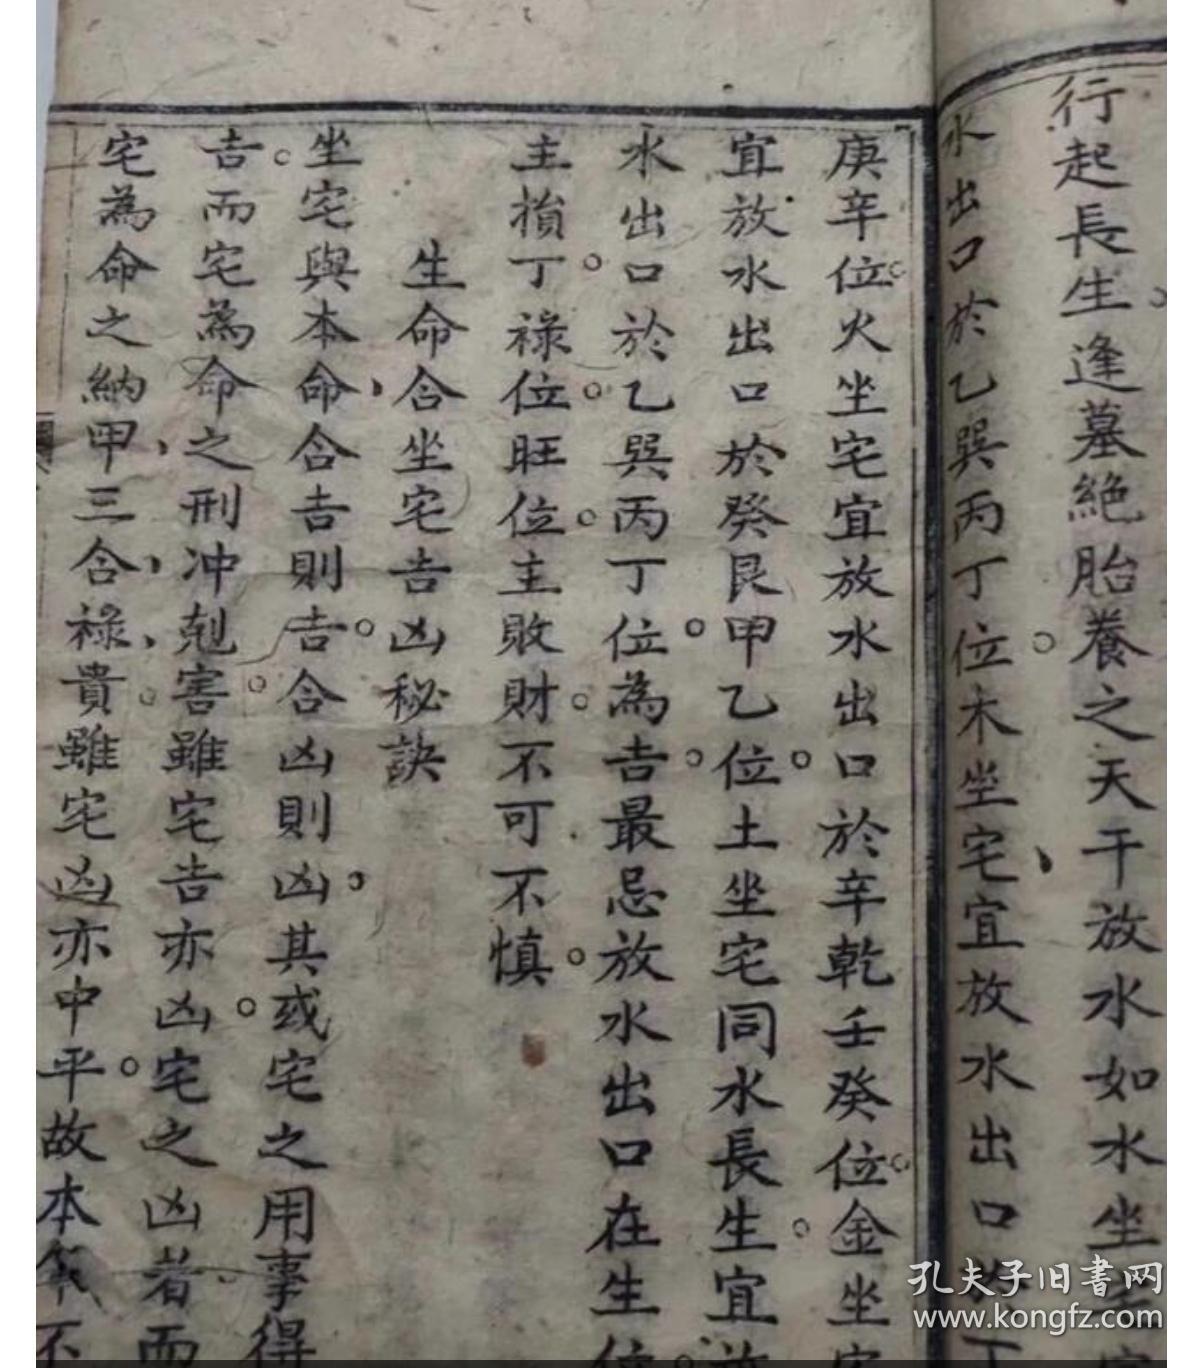 行起長生逢墓絶胎養之天干放水如水坐
水出口於乙巽丙丁位木坐宅宜放水出口
庚辛位火坐宅宜放水出口於辛乾壬癸位金坐
宜放水出口於癸艮甲乙位土坐宅同水長生宜
水出口於乙巽丙丁位為吉最忌放水出口在生
主損丁祿位旺位主敗財不可不慎
生命合坐宅吉凶秘訣
坐宅與本命合吉則吉合凶則凶其或宅之用事得
吉而宅為命之刑冲剋害雖宅吉亦凶宅之凶者而
宅為命之納甲三合祿貴雖宅凶亦中平故本不
孔夫子旧书网
www.kongfz.com